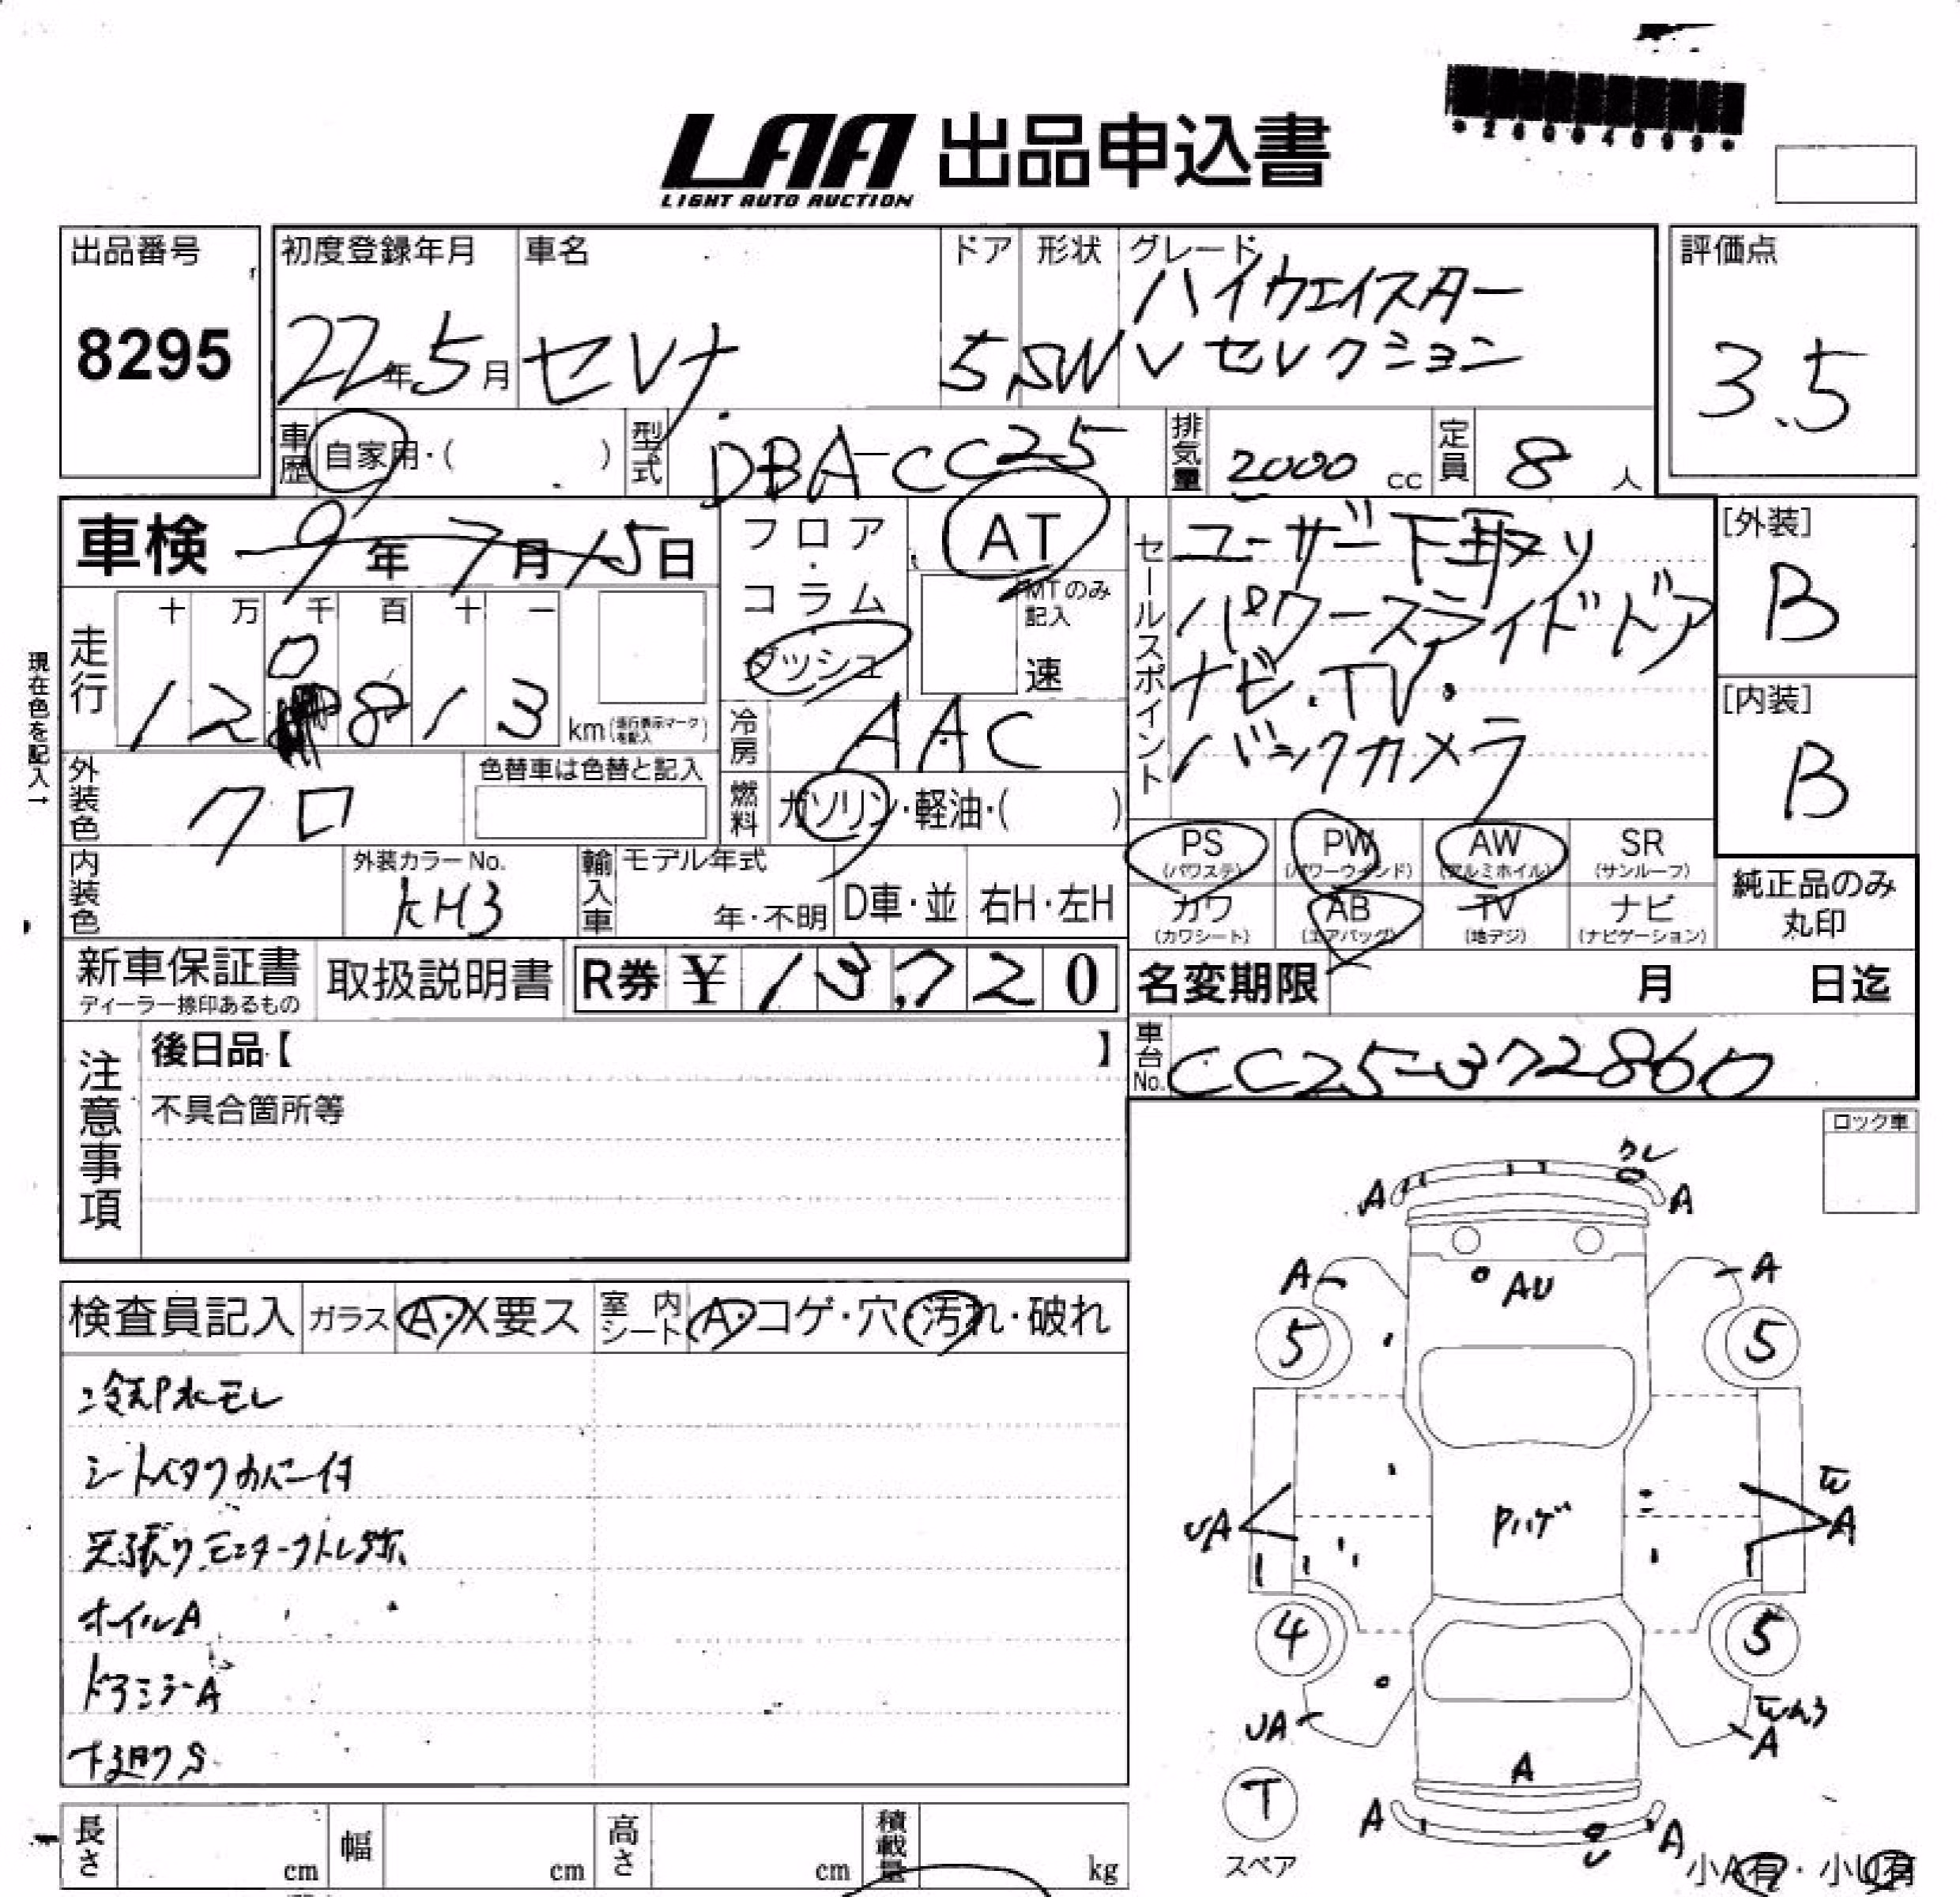 *26004099*
LAA 出品申込書
LIGHT AUTO AUCTION
出品番号
8295
初度登録年月
22年5月
車名
セレナ
ドア
5
形状
SW
グレード
ハイウェイスター
Vセレクション
評価点
3.5
車歴
自家用・( )
型式
DBA-CC25
排気量
2000 cc
定員
8 人
車検 9年7月15日
フロア・コラム・ダッシュ
AT
MTのみ記入
速
セールスポイント
ユーザー下取り
パワースライドドア
ナビ・TV・
バックカメラ
[外装]
B
[内装]
B
現在色を記入→
走行
十 万 千 百 十 一
1 2 0 8 1 3 km
(走行表示マークを記入)
冷房
AAC
外装色
クロ
色替車は色替と記入
燃料
ガソリン・軽油・( )
内装色
外装カラーNo.
KH3
輸入車
モデル年式
年・不明
D車・並
右H・左H
PS (パワステ)
PW (パワーウインド)
AW (アルミホイル)
SR (サンルーフ)
カワ (カワシート)
AB (エアバッグ)
TV (地デジ)
ナビ (ナビゲーション)
純正品のみ
丸印
新車保証書
ディーラー捺印あるもの
取扱説明書
R券 ¥13,720
名変期限 月 日迄
車台No.
CC25-372860
注意事項
後日品【 】
不具合箇所等
ロック車
検査員記入
ガラス
A・X要ス
室内シート
A・コゲ・穴・汚れ・破れ
冷却水モレ
シートイタクカバー付
天張りモニター外レ跡
ホイルA
ドアミラーA
下廻りS
ワレ
A
A
A
A
AU
5
5
UA
Pハゲ
W
A
4
5
UA
A
A
T
スペア
A
A
U
小A有・小U有
長さ cm
幅 cm
高さ cm
積載量 kg